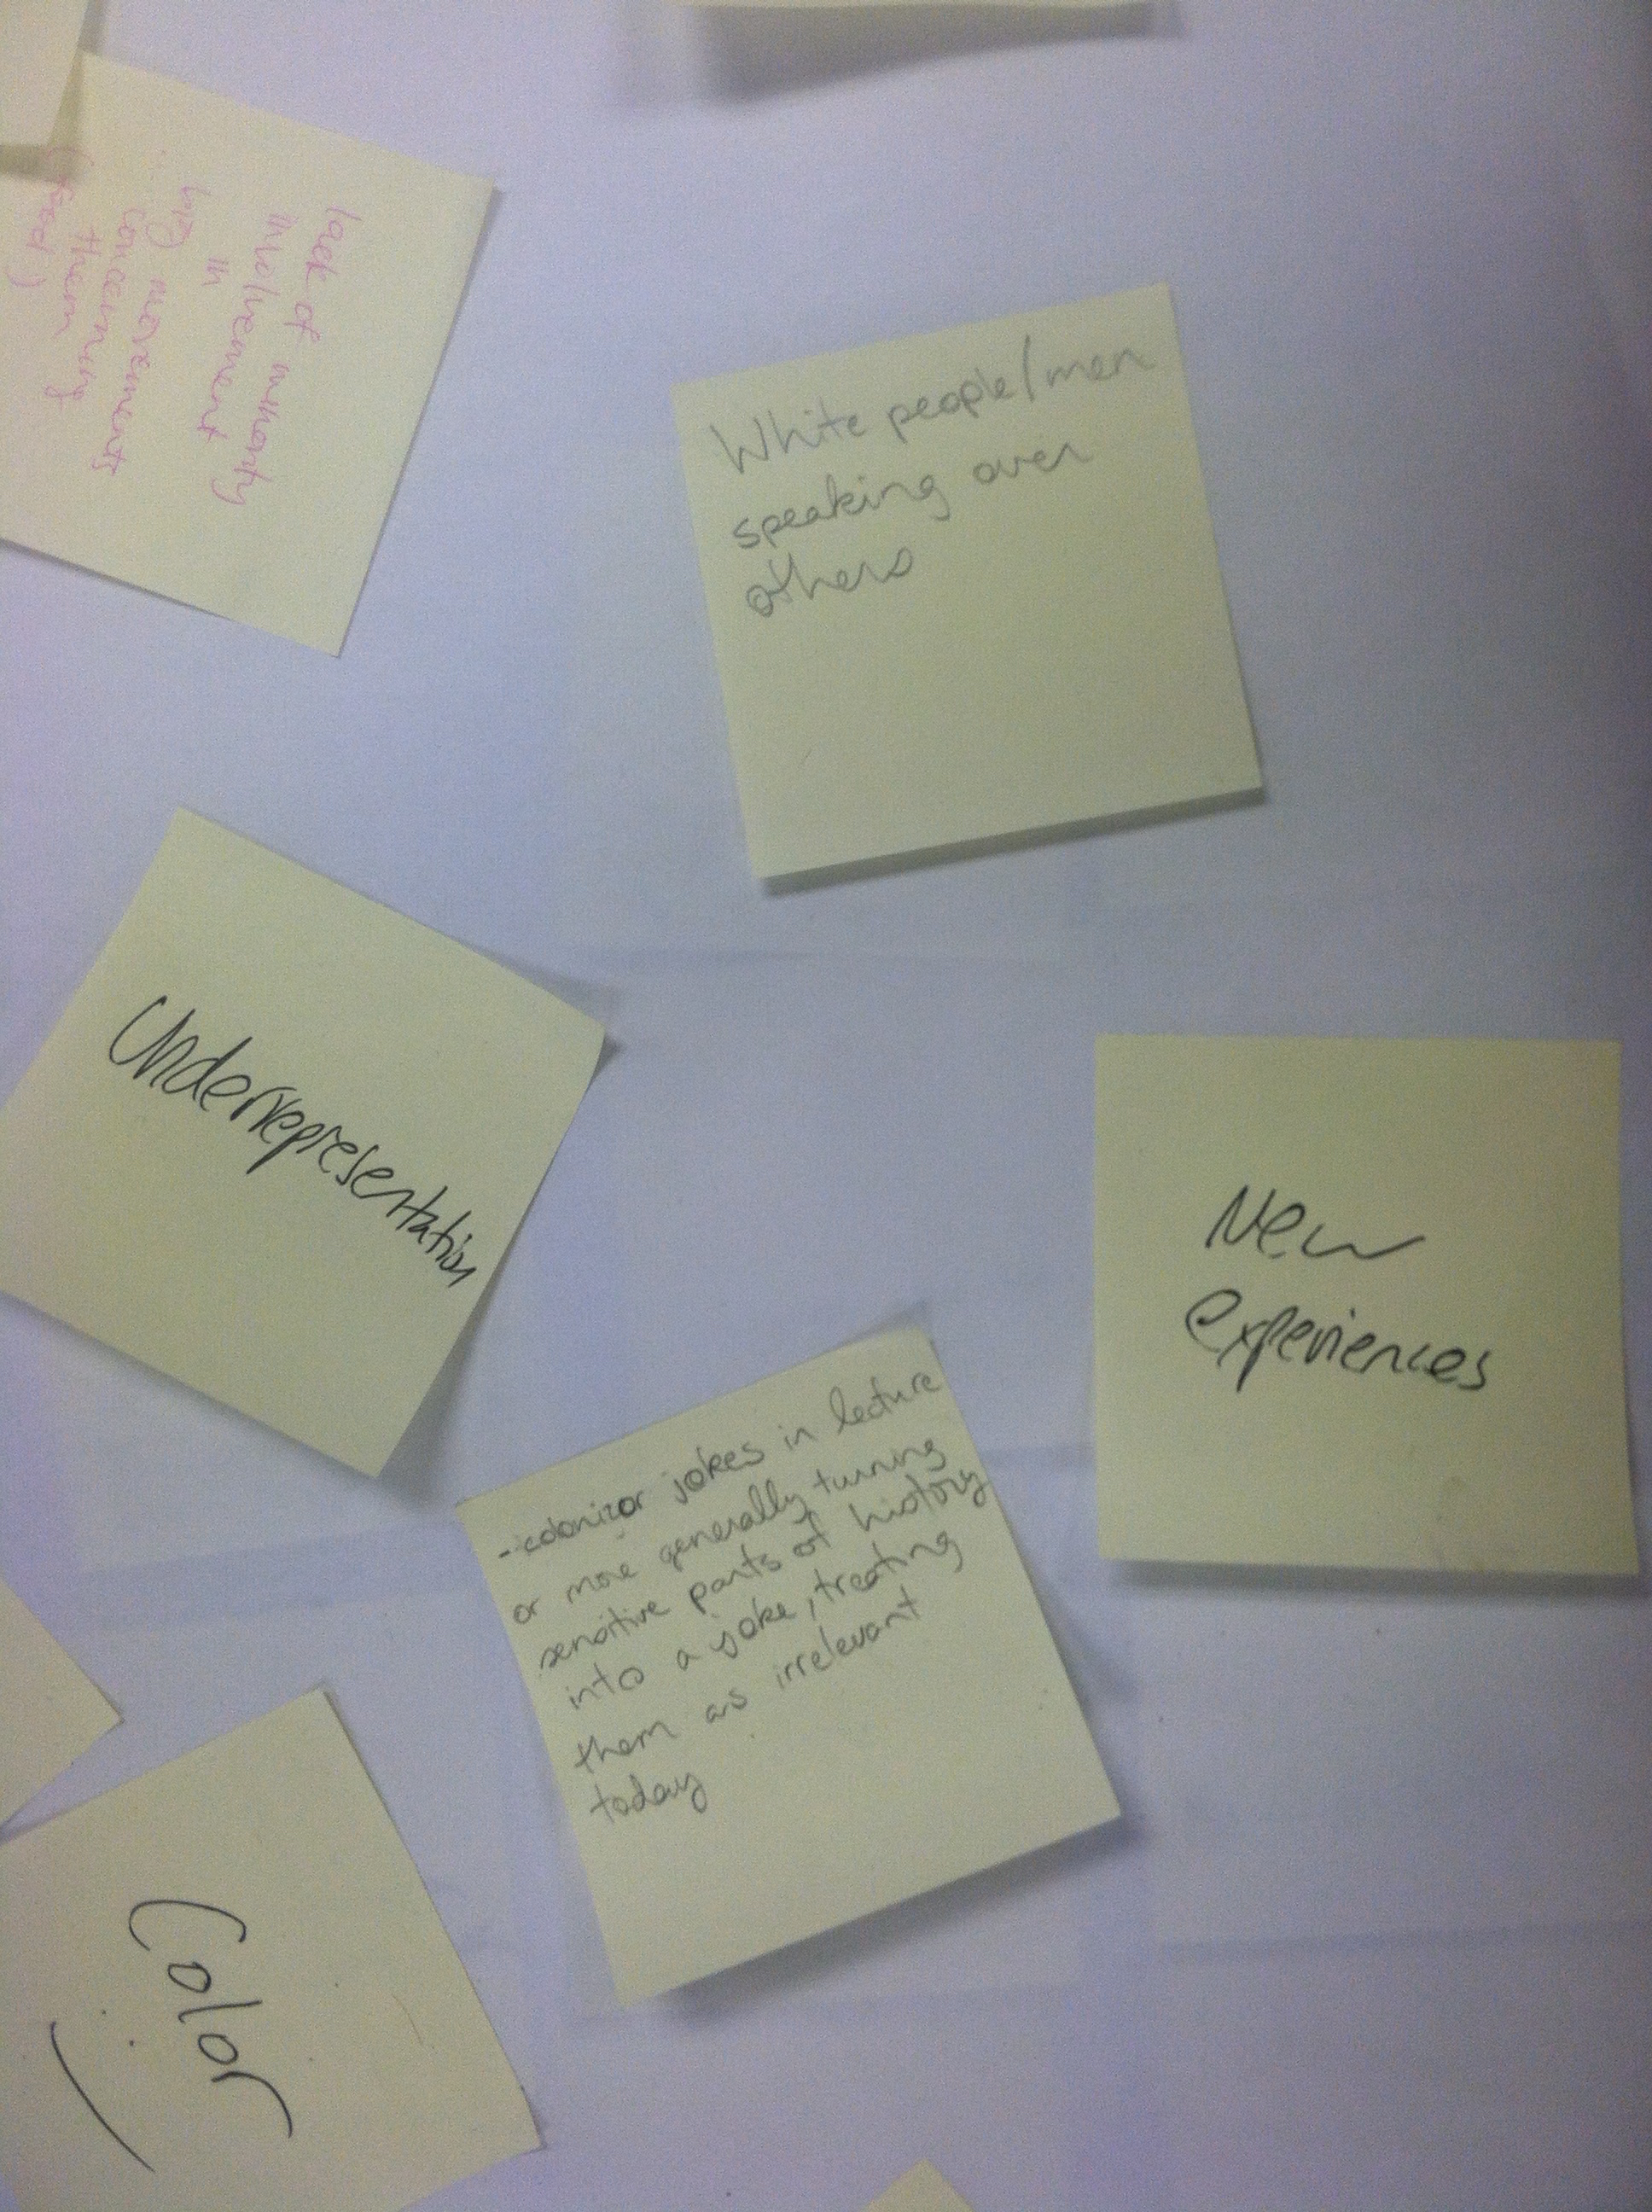 lack of
minority
involvement
in
big movements
concerning
them
(food)
White people/men
speaking over
others
Underrepresentation
New
experiences
- colonizor jokes in lecture
or more generally turning
sensitive parts of history
into a joke, treating
them as irrelevant
today
Color